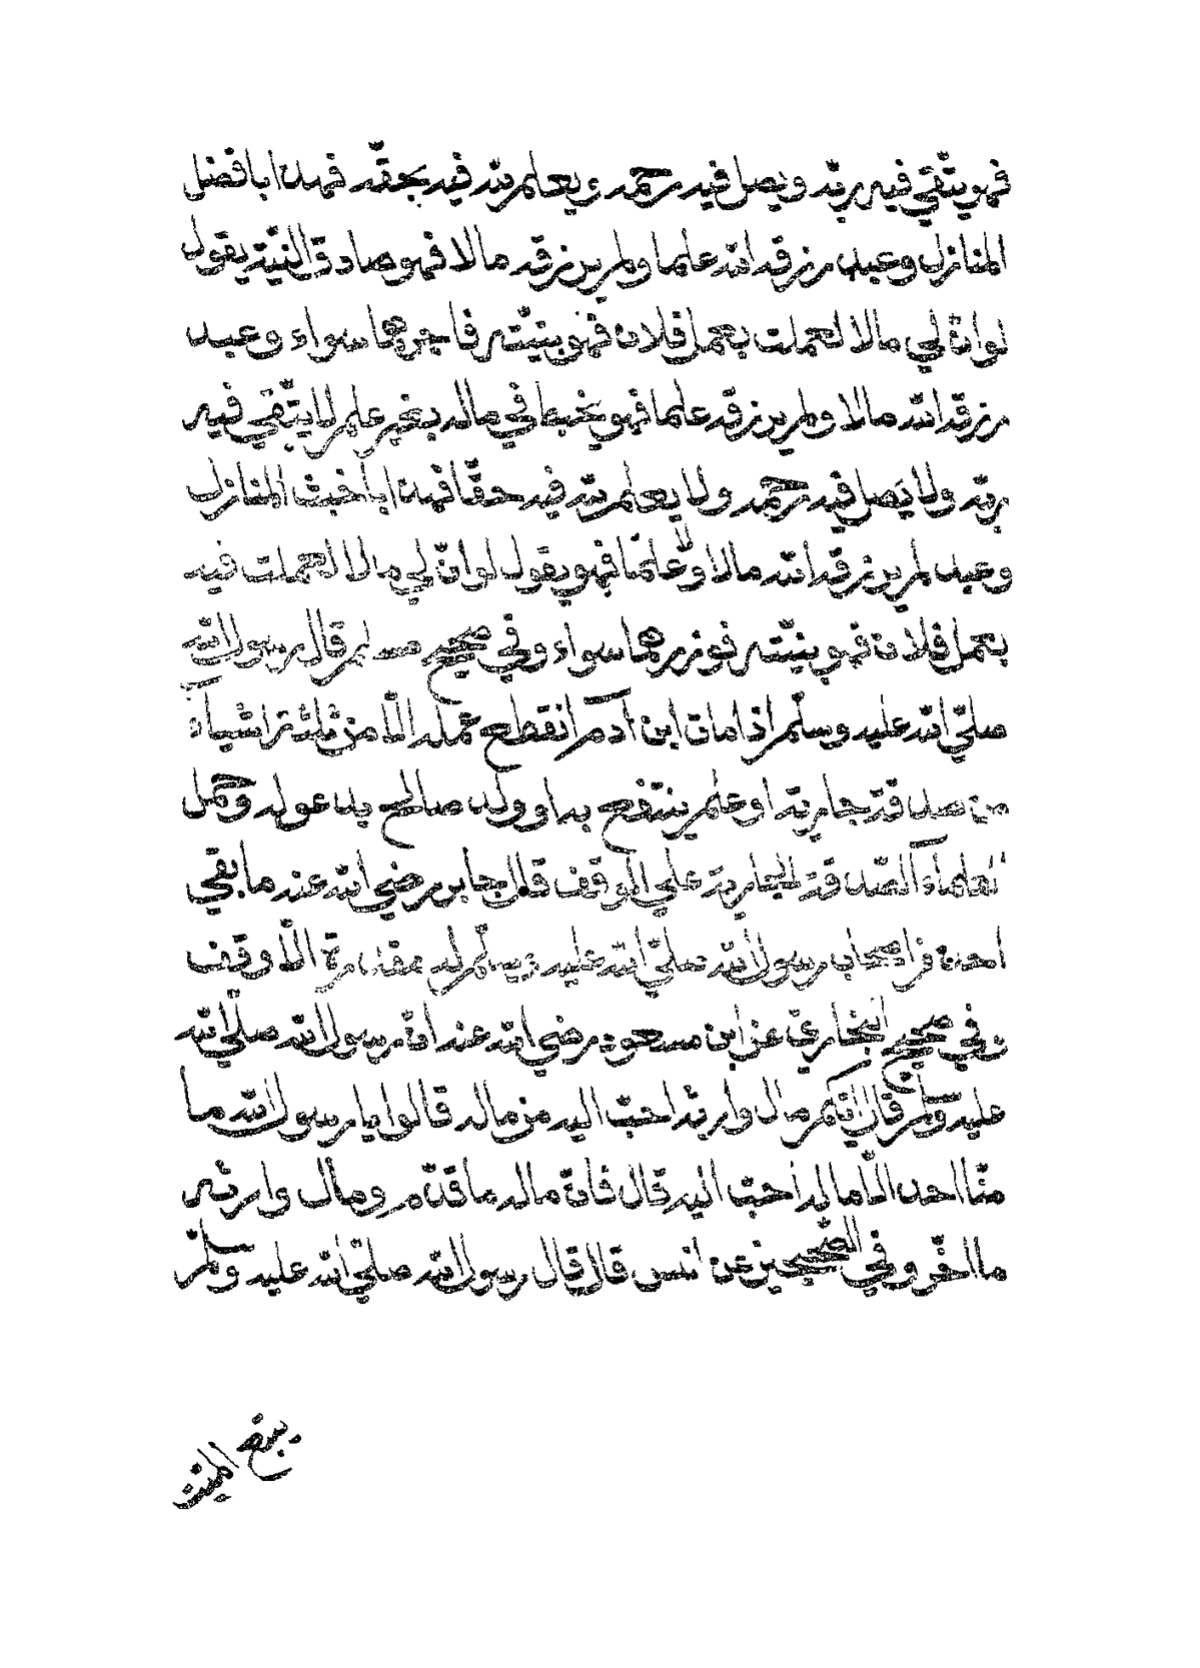 فهو يتّقي فيه ربّه ويصل فيه رحمه ويعلم لله فيه بحقّه فهذا بافضل
المنازل وعبد رزقه الله علما ولم يرزقه مالا فهو صادق النيّة يقول
لو انّ لي مالا لعملت بعمل فلان فهو بنيّته فاجرهما سواء وعبد
رزقه الله مالا ولم يرزقه علما فهو يخبط في ماله بغير علم لا يتّقي فيه
ربّه ولا يَصل فيه رحمه ولا يعلم لله فيه حقّا فهذا باخبث المنازل
وعبد لم يرزقه الله مالا ولا علمًا فهو يقول لو انّ لي مالا لعملت فيه
بعمل فلان فهو بنيّته فوزرهما سواء وفي صحيح مسلم قال رسول الله
صلّي الله عليه وسلّم اذا مات ابن آدم انقطع عمله الّا من ثلثة اشياء
من صدقة جارية او علم ينتفع به او ولد صالح يدعو له وحمل
العلماء الصّدقة الجارية علي الوقف قال جابر رضي الله عنه ما بقي
احد من اصحاب رسول الله صلّي الله عليه وسلّم له مقدرة الّا وقف
وفي صحيح البخاريّ عن ابن مسعود رضي الله عنه انّ رسول الله صلّي الله
عليه وسلّم قال ايّكم مال وارثه احبّ اليه من ماله قالوا يا رسول الله ما
منّا احد الّا ماله أحبّ اليه قال فانّ ماله ما قدّم ومال وارثه
ما اخّر وفي الصّحيحين عن انس قال قال رسول الله صلّي الله عليه وسلّم
يتبع الميّت